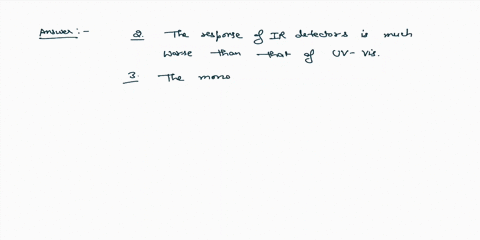 Answer :- 2. The response of IR detectors is much
worse than that of UV-Vis.
3. The mono